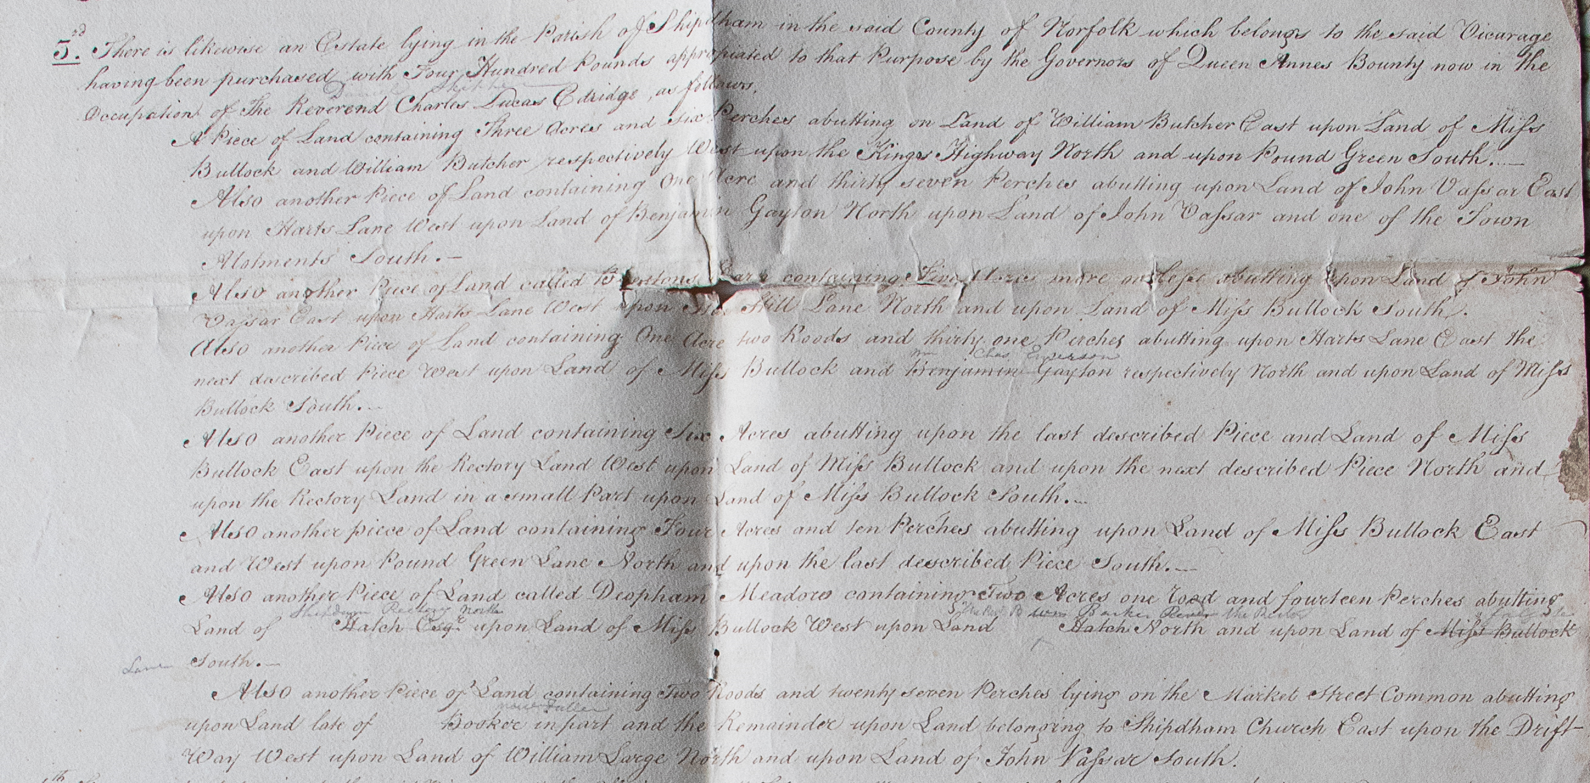 3.d There is likewise an Estate lying in the Parish of Shipdham in the said County of Norfolk which belongs to the said Vicarage
having been purchased with Four Hundred Pounds appropriated to that Purpose by the Governors of Queen Annes Bounty now in the
Occupation of The Reverend Charles Lucas Edridge, as follows.
A Piece of Land containing Three Acres and six Perches abutting on Land of William Butcher East upon Land of Miſs
Bullock and William Butcher respectively West upon the Kings Highway North and upon Pound Green South.—
Also another Piece of Land containing One Acre and thirty seven Perches abutting upon Land of John Vaſsar East
upon Harts Lane West upon Land of Benjamin Gayton North upon Land of John Vaſsar and one of the Town
Alotments South.—
Also another Piece of Land called containing Five Acres more or leſs abutting upon Land of John
Vaſsar East upon Harts Lane West upon Mill Lane North and upon Land of Miſs Bullock South.
Also another Piece of Land containing One Acre two Roods and thirty one Perches abutting upon Harts Lane East the
Chas Epperson
next described Piece West upon Land of Miſs Bullock and Benjamin Gayton respectively North and upon Land of Miſs
Bullock South.—
Also another Piece of Land containing Six Acres abutting upon the last described Piece and Land of Miſs
Bullock East upon the Rectory Land West upon Land of Miſs Bullock and upon the next described Piece North and
upon the Rectory Land in a small Part upon Land of Miſs Bullock South.—
Also another piece of Land containing Four Acres and ten Perches abutting upon Land of Miſs Bullock East
and West upon Pound Green Lane North and upon the last described Piece South.—
Also another Piece of Land called Deopham Meadow containing Two Acres one Rood and fourteen Perches abutting
Shipdham Rectory North Wm Barker
Land of Hatch Esqr. upon Land of Miſs Bullock West upon Land Hatch North and upon Land of Miſs Bullock
Lane South.—
Also another Piece of Land containing Two Roods and twenty seven Perches lying on the Market Street Common abutting
now Fuller
upon Land late of Booker in part and the Remainder upon Land belonging to Shipdham Church East upon the Drift
Way West upon Land of William Large North and upon Land of John Vaſsar South.